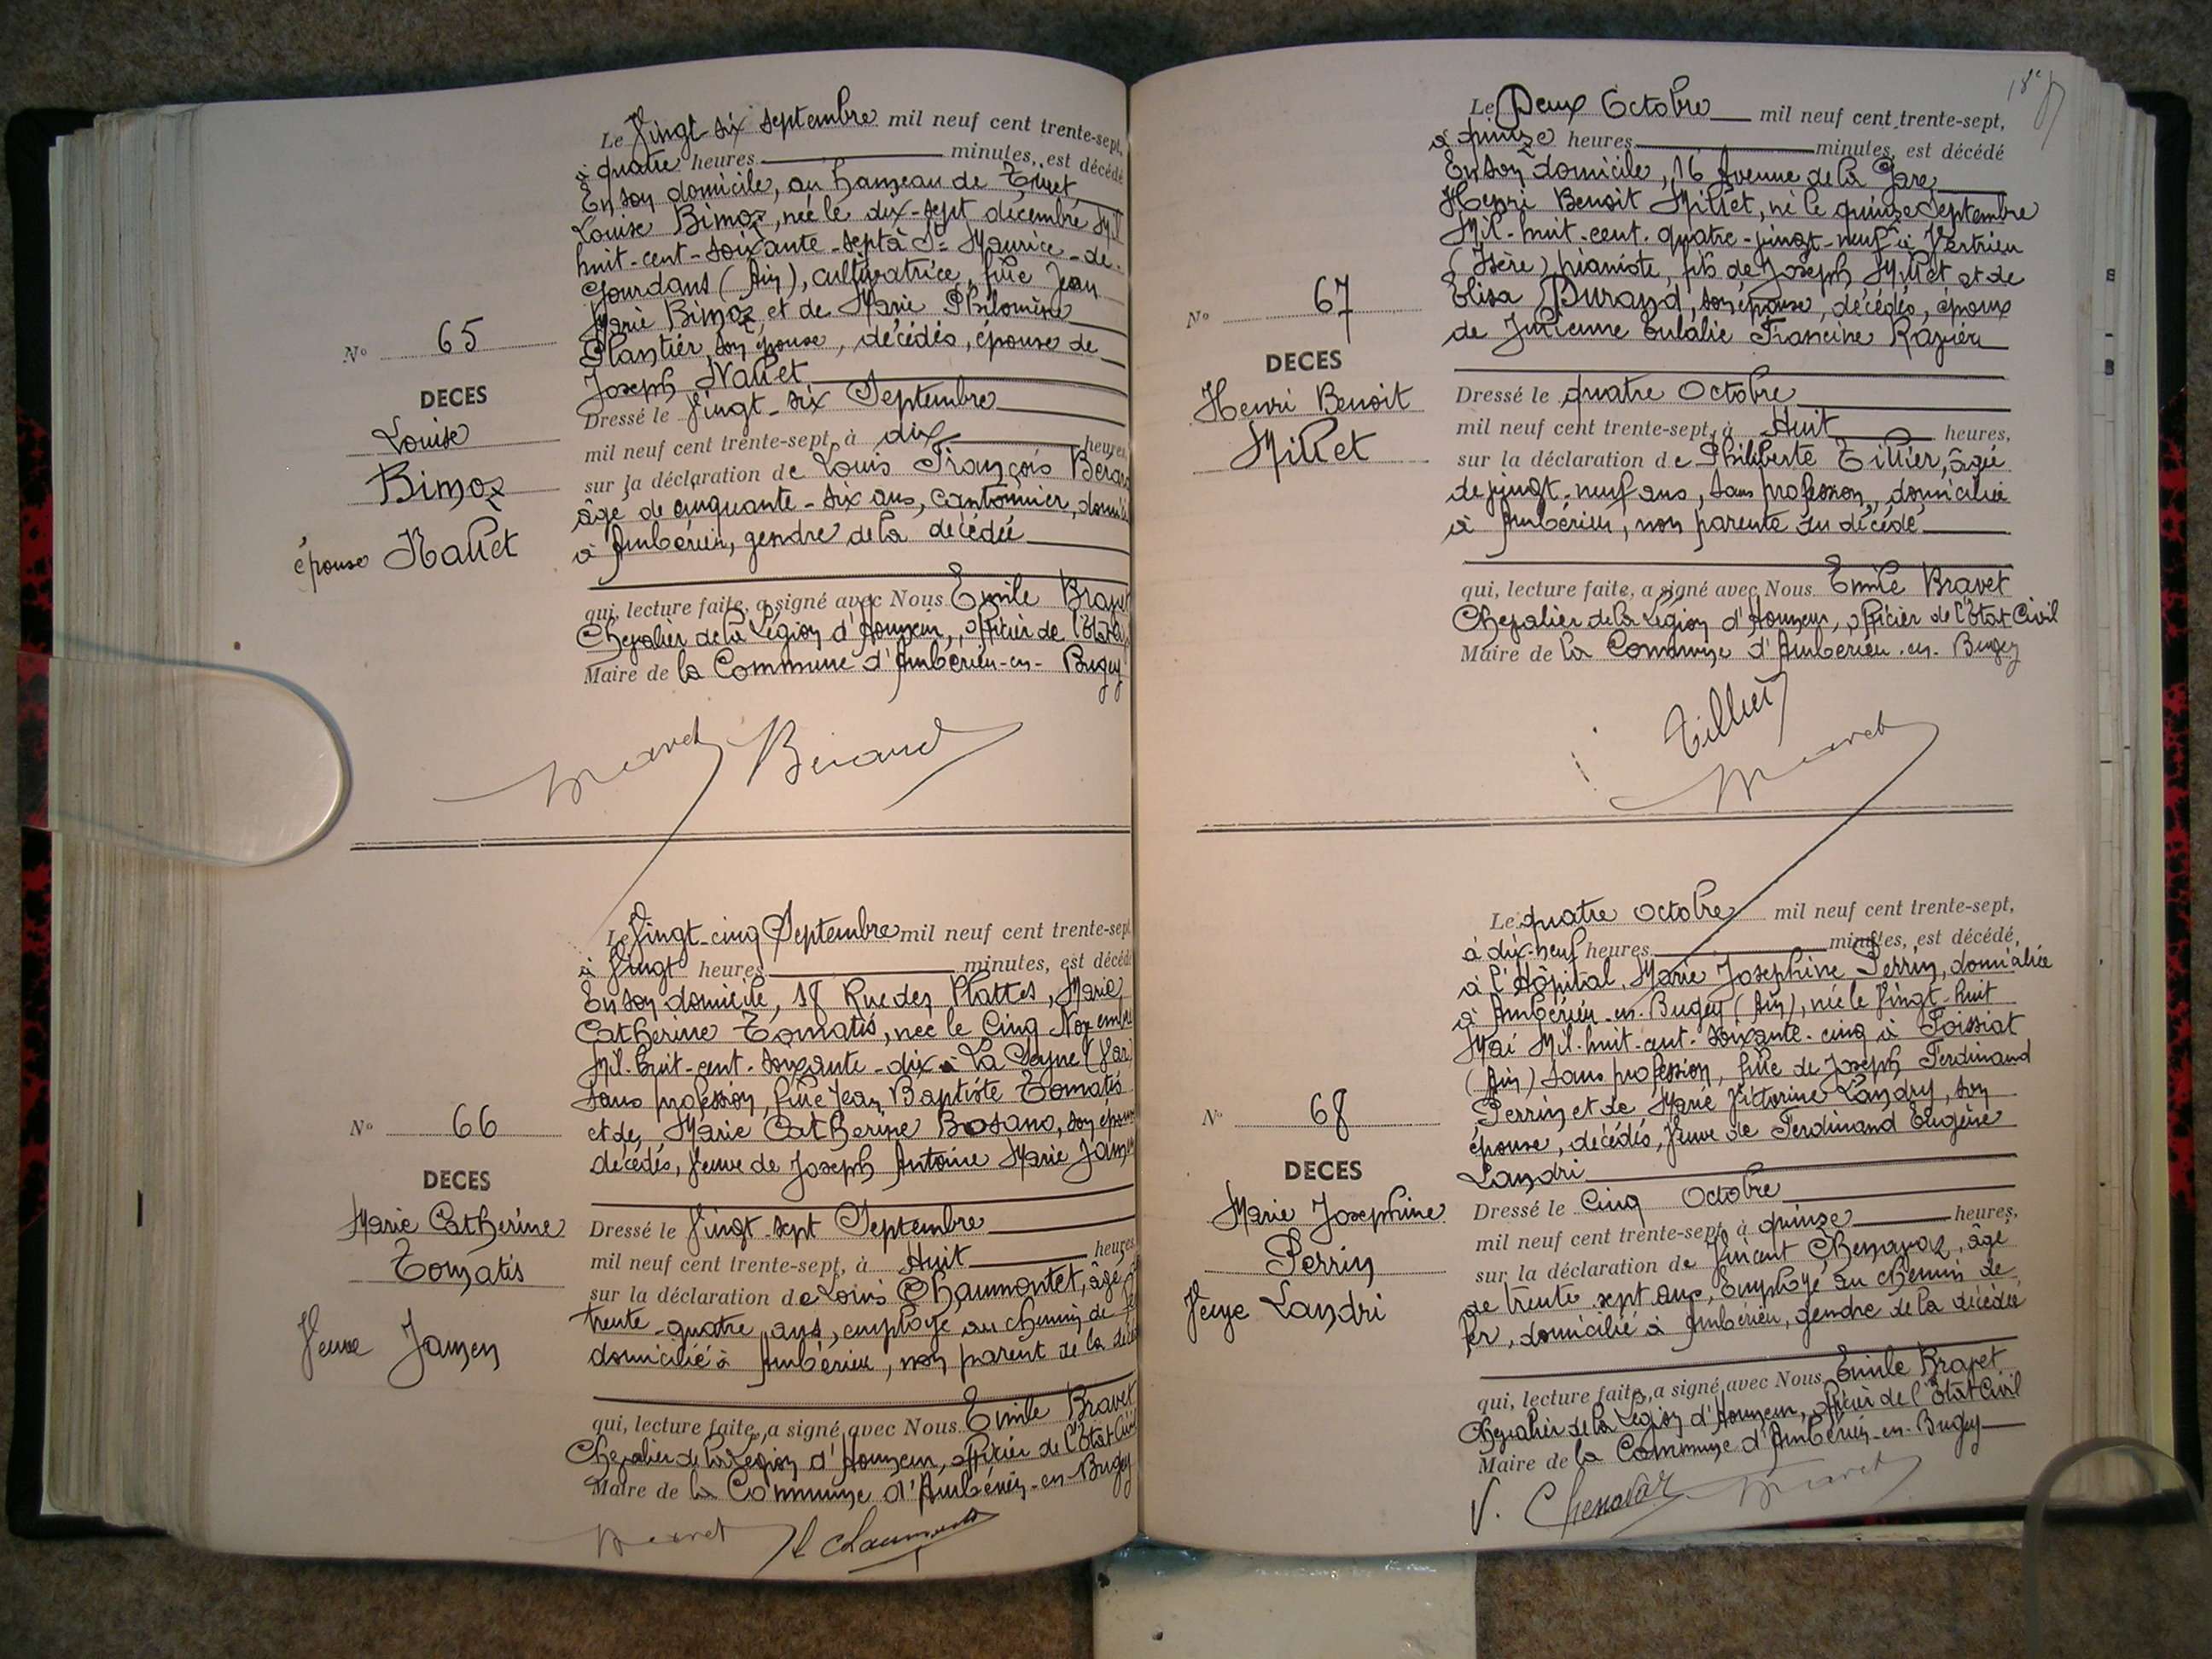 Le Vingt-six septembre mil neuf cent trente-sept,
à quatre heures minutes, est décédé
En son domicile, au hameau de Tiret,
Louise Bimoz, née le dix-sept décembre Mil
huit-cent-soixante-sept à St Maurice-de-
Gourdans (Ain), cultivatrice, fille Jean
Marie Bimoz et de Marie Philomène
Plantier, son épouse, décédés, épouse de
Joseph Nallet
Nº 65
DECES
Louise
Bimoz
épouse Nallet
Dressé le Vingt-six Septembre
mil neuf cent trente-sept, à dix heures,
sur la déclaration de Louis François Berard
âgé de cinquante-six ans, cantonnier, domicilié
à Ambérieu, gendre de la décédée
qui, lecture faite, a signé avec Nous Emile Bravet
Chevalier de la Légion d'Honneur, officier de l'Etat
Maire de la Commune d'Ambérieu-en-Bugey
Bravet Berard
Le Vingt-cinq Septembre mil neuf cent trente-sept
à Vingt heures minutes, est décédé
En son domicile, 18 Rue des Plattes, Marie
Catherine Tomatis, née le Cinq Novembre
Mil-huit-cent-soixante-dix à La Seyne (Var)
sans profession, fille Jean Baptiste Tomatis
et de Marie Catherine Bosano, son épouse
décédés, Veuve de Joseph Antoine Marie Jamen
Nº 66
DECES
Marie Catherine
Tomatis
Veuve Jamen
Dressé le Vingt-sept Septembre
mil neuf cent trente-sept, à Huit heures
sur la déclaration de Louis Chaumontet, âgé
trente-quatre ans, employé au chemin de fer
domicilié à Ambérieu, non parent de la
qui, lecture faite, a signé avec Nous Emile Bravet
Chevalier de la Légion d'Honneur, officier de l'Etat Civil
Maire de la Commune d'Ambérieu-en-Bugey
Bravet
Le Deux Octobre mil neuf cent trente-sept,
à quinze heures minutes, est décédé
En son domicile, 16 Avenue de la Gare,
Henri Benoit Millet, né le quinze Septembre
Mil-huit-cent-quatre-vingt-neuf à Vertrieu
(Isère) pianiste, fils de Joseph Millet et de
Elisa Durand, son épouse, décédés, époux
de Julienne Eulalie Francine Ravier
Nº 67
DECES
Henri Benoit
Millet
Dressé le quatre Octobre
mil neuf cent trente-sept, à Huit heures,
sur la déclaration de Philiberte Tillier, âgée
de vingt-neuf ans, sans profession, domiciliée
à Ambérieu, non parente au décédé
qui, lecture faite, a signé avec Nous Emile Bravet
Chevalier de la Légion d'Honneur, officier de l'Etat Civil
Maire de la Commune d'Ambérieu-en-Bugey
Tillier
Bravet
Le quatre Octobre mil neuf cent trente-sept,
à dix-neuf heures minutes, est décédé,
à l'Hôpital, Marie Josephine Perrin, domiciliée
à Ambérieu-en-Bugey (Ain), née le Vingt-huit
Mai Mil-huit-cent-soixante-cinq à Foissiat
(Ain) sans profession, fille de Joseph Ferdinand
Perrin et de Marie Victorine Landry, son
épouse, décédés, Veuve de Ferdinand Eugène
Landri
Nº 68
DECES
Marie Josephine
Perrin
Veuve Landri
Dressé le Cinq Octobre
mil neuf cent trente-sept, à quinze heures,
sur la déclaration de Vincent Chenavaz, âgé
de trente sept ans, Employé au chemin de
fer, domicilié à Ambérieu, gendre de la décédée
qui, lecture faite, a signé avec Nous Emile Bravet
Chevalier de la Légion d'Honneur, officier de l'Etat Civil
Maire de la Commune d'Ambérieu-en-Bugey
V. Chenavaz Bravet